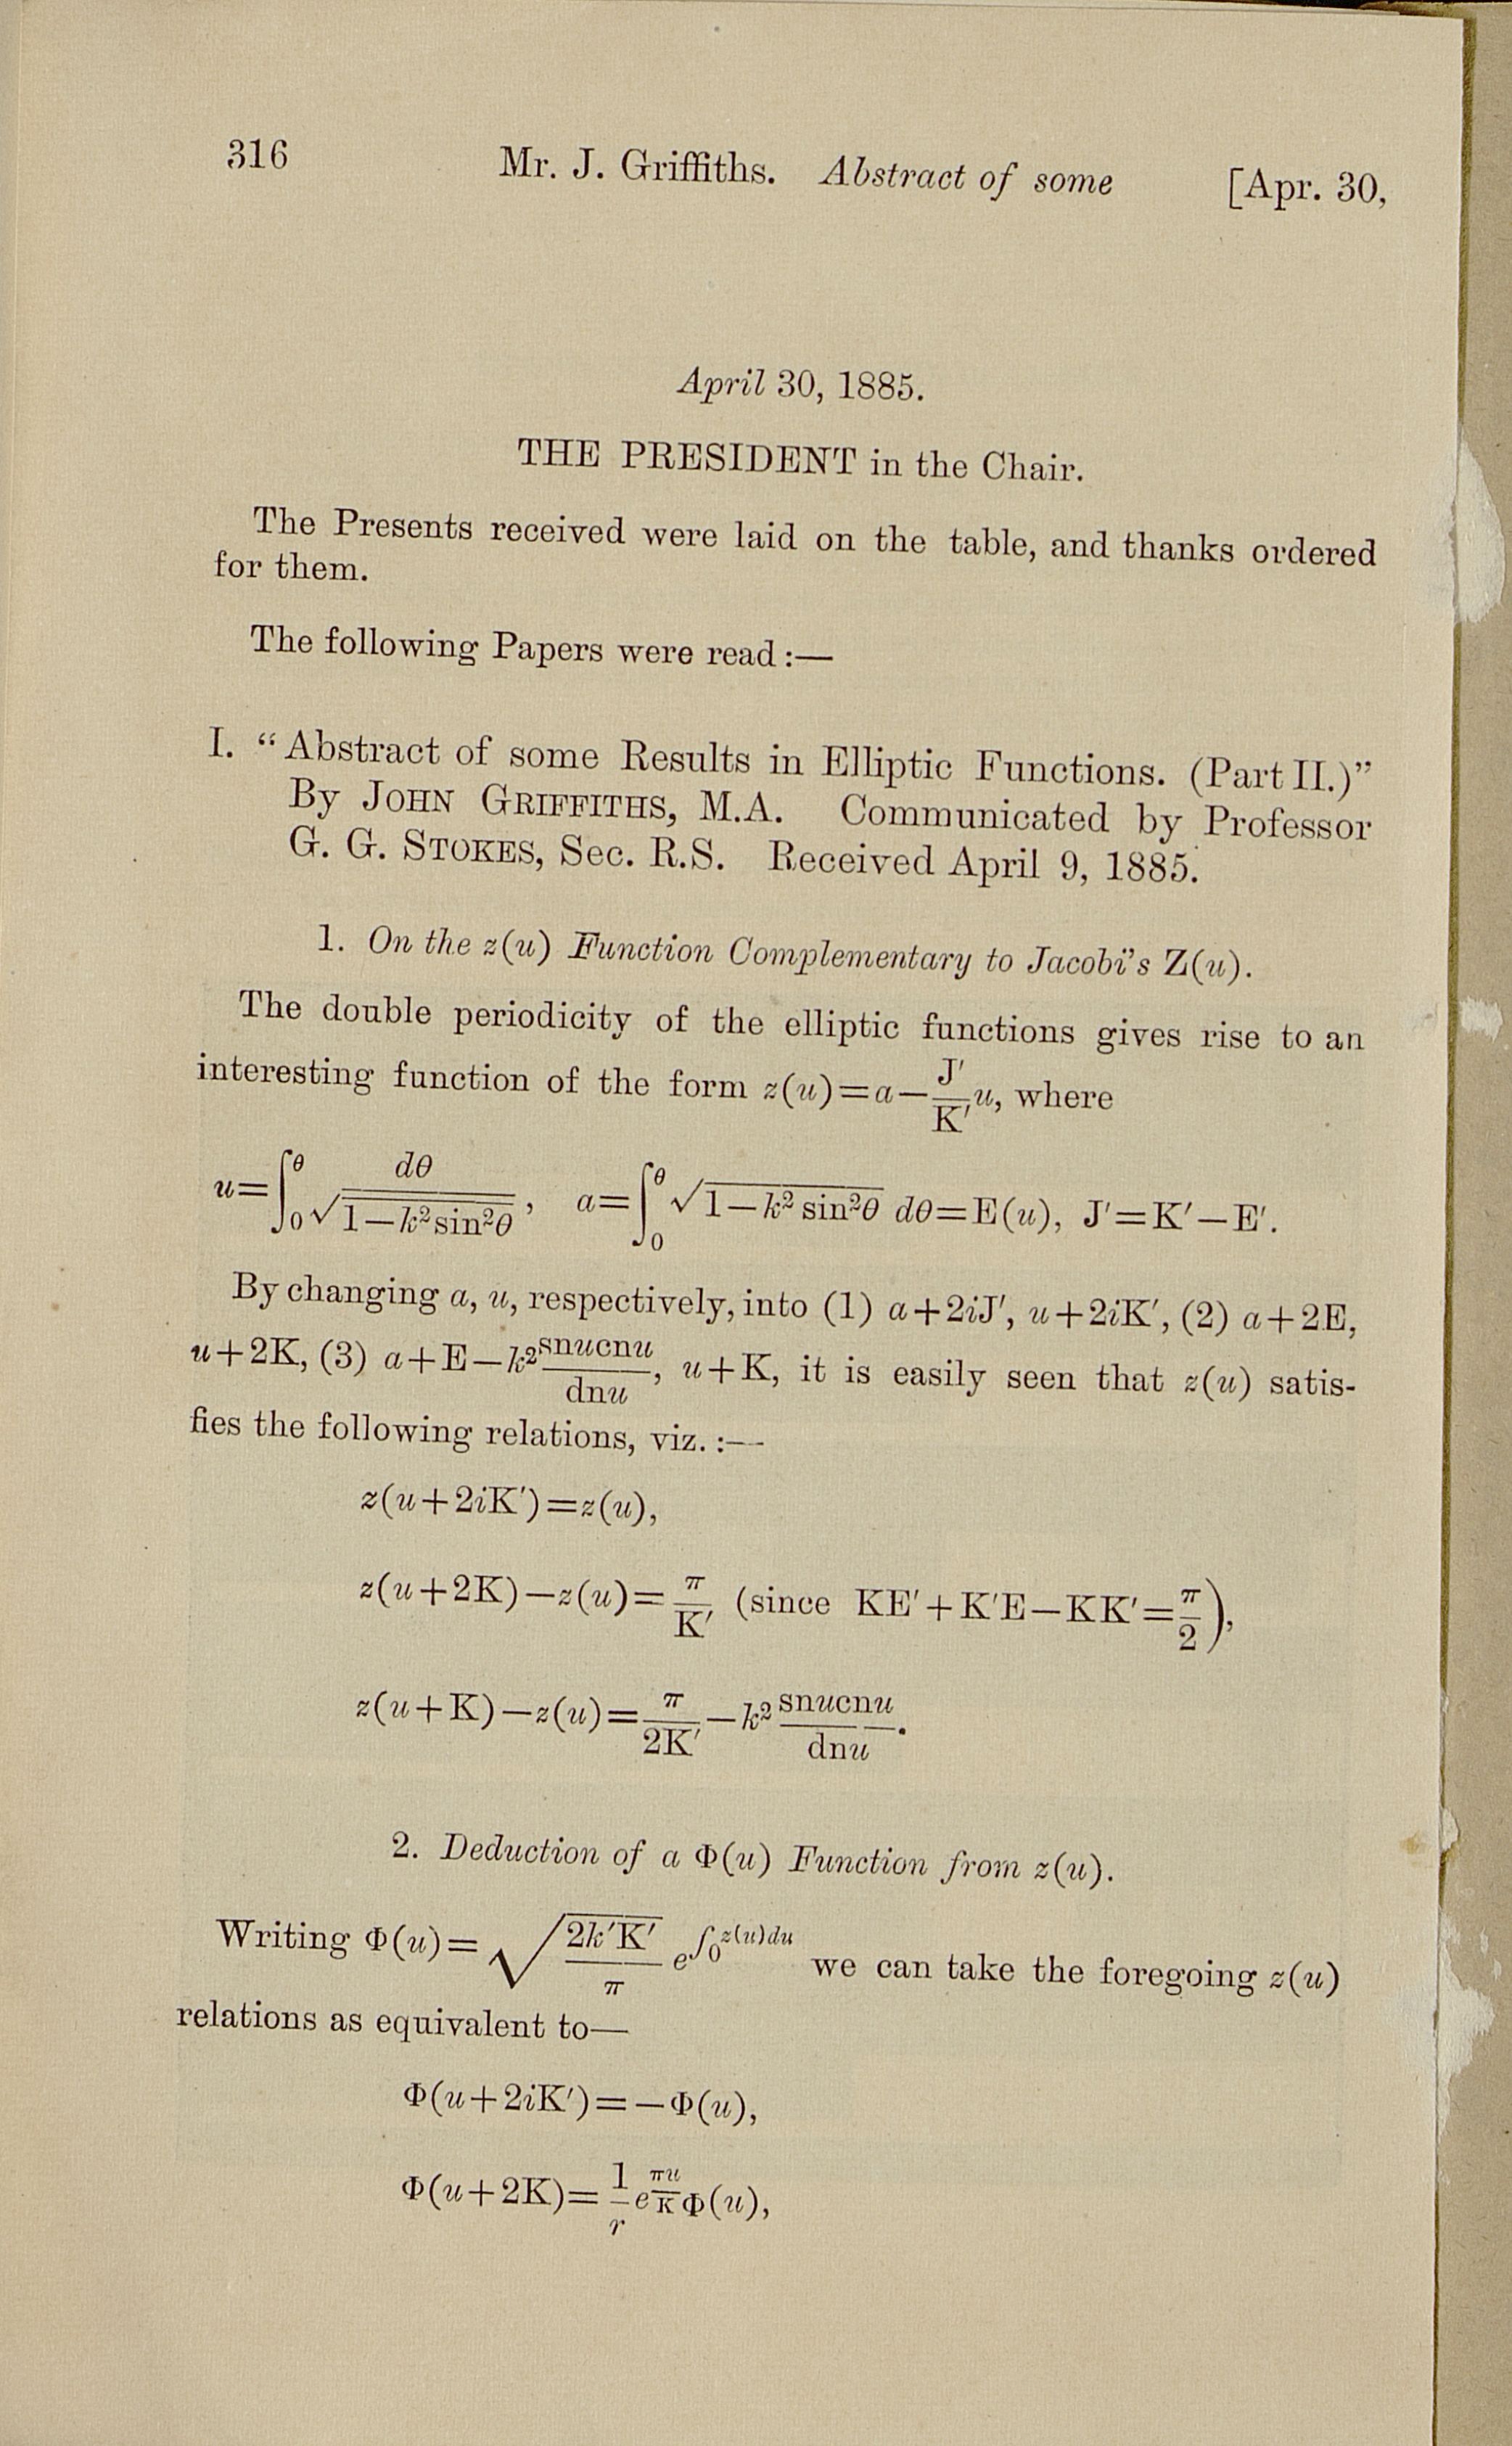 316 Mr. J. Griffiths. Abstract of some [Apr. 30,
April 30, 1885.
THE PRESIDENT in the Chair.
The Presents received were laid on the table, and thanks ordered
for them.
The following Papers were read :—
I. “Abstract of some Results in Elliptic Functions. (Part II.)”
By JOHN GRIFFITHS, M.A. Communicated by Professor
G. G. STOKES, Sec. R.S. Received April 9, 1885.
1. On the z(u) Function Complementary to Jacobi's Z(u).
The double periodicity of the elliptic functions gives rise to an
interesting function of the form z(u)=a−\frac{J′}{K′}u, where
u=\int_0^θ \frac{dθ}{\sqrt{1−k²sin²θ}}, a=\int_0^θ \sqrt{1−k² sin²θ} dθ=E(u), J′=K′−E′.
By changing a, u, respectively, into (1) a+2iJ′, u+2iK′, (2) a+2E,
u+2K, (3) a+E−k²\frac{snucnu}{dnu}, u+K, it is easily seen that z(u) satis-
fies the following relations, viz. :—
z(u+2iK′)=z(u),
z(u+2K)−z(u)=\frac{π}{K′} (since KE′+K′E−KK′=\frac{π}{2}),
z(u+K)−z(u)=\frac{π}{2K′}−k²\frac{snucnu}{dnu}.
2. Deduction of a Φ(u) Function from z(u).
Writing Φ(u)=\sqrt{\frac{2k′K′}{π}} e^{\int_0 z(u)du} we can take the foregoing z(u)
relations as equivalent to—
Φ(u+2iK′)=−Φ(u),
Φ(u+2K)=\frac{1}{r}e^{\frac{πu}{K}}Φ(u),